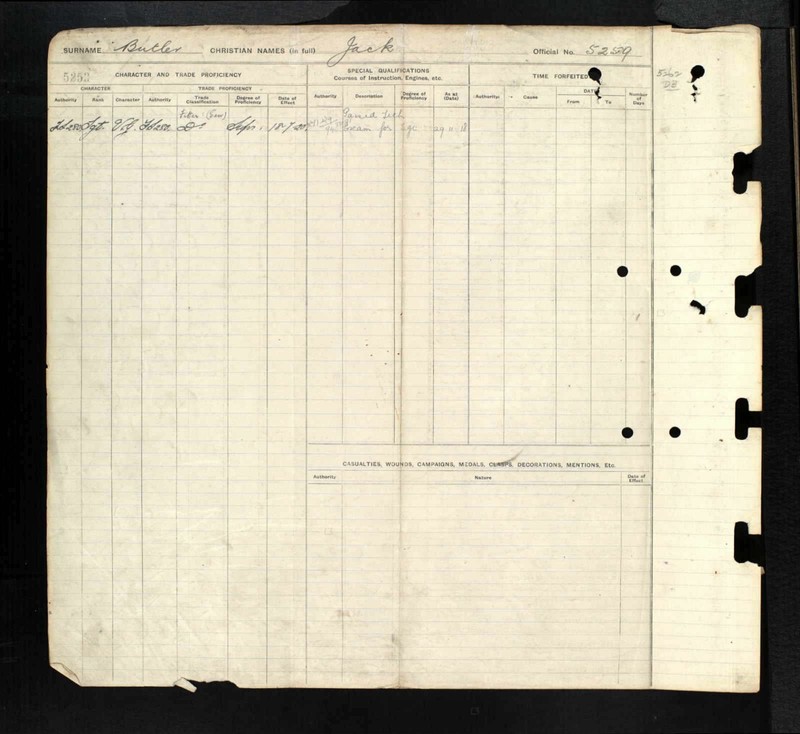 SURNAME Butler CHRISTIAN NAMES (in full) Jack Official No. 5259
5252 CHARACTER AND TRADE PROFICIENCY
CHARACTER TRADE PROFICIENCY
Authority Rank Character Authority Trade Classification Degree of Proficiency Date of Effect
Sgt. V.G.
SPECIAL QUALIFICATIONS
Courses of Instruction, Engines, etc.
Authority Description Degree of Proficiency As at (Date)
Passed
Exam for Sgt 29 11 18
TIME FORFEITED
DATE
Authority Cause From To Number of Days
CASUALTIES, WOUNDS, CAMPAIGNS, MEDALS, CLASPS, DECORATIONS, MENTIONS, Etc.
Authority Nature Date of Effect